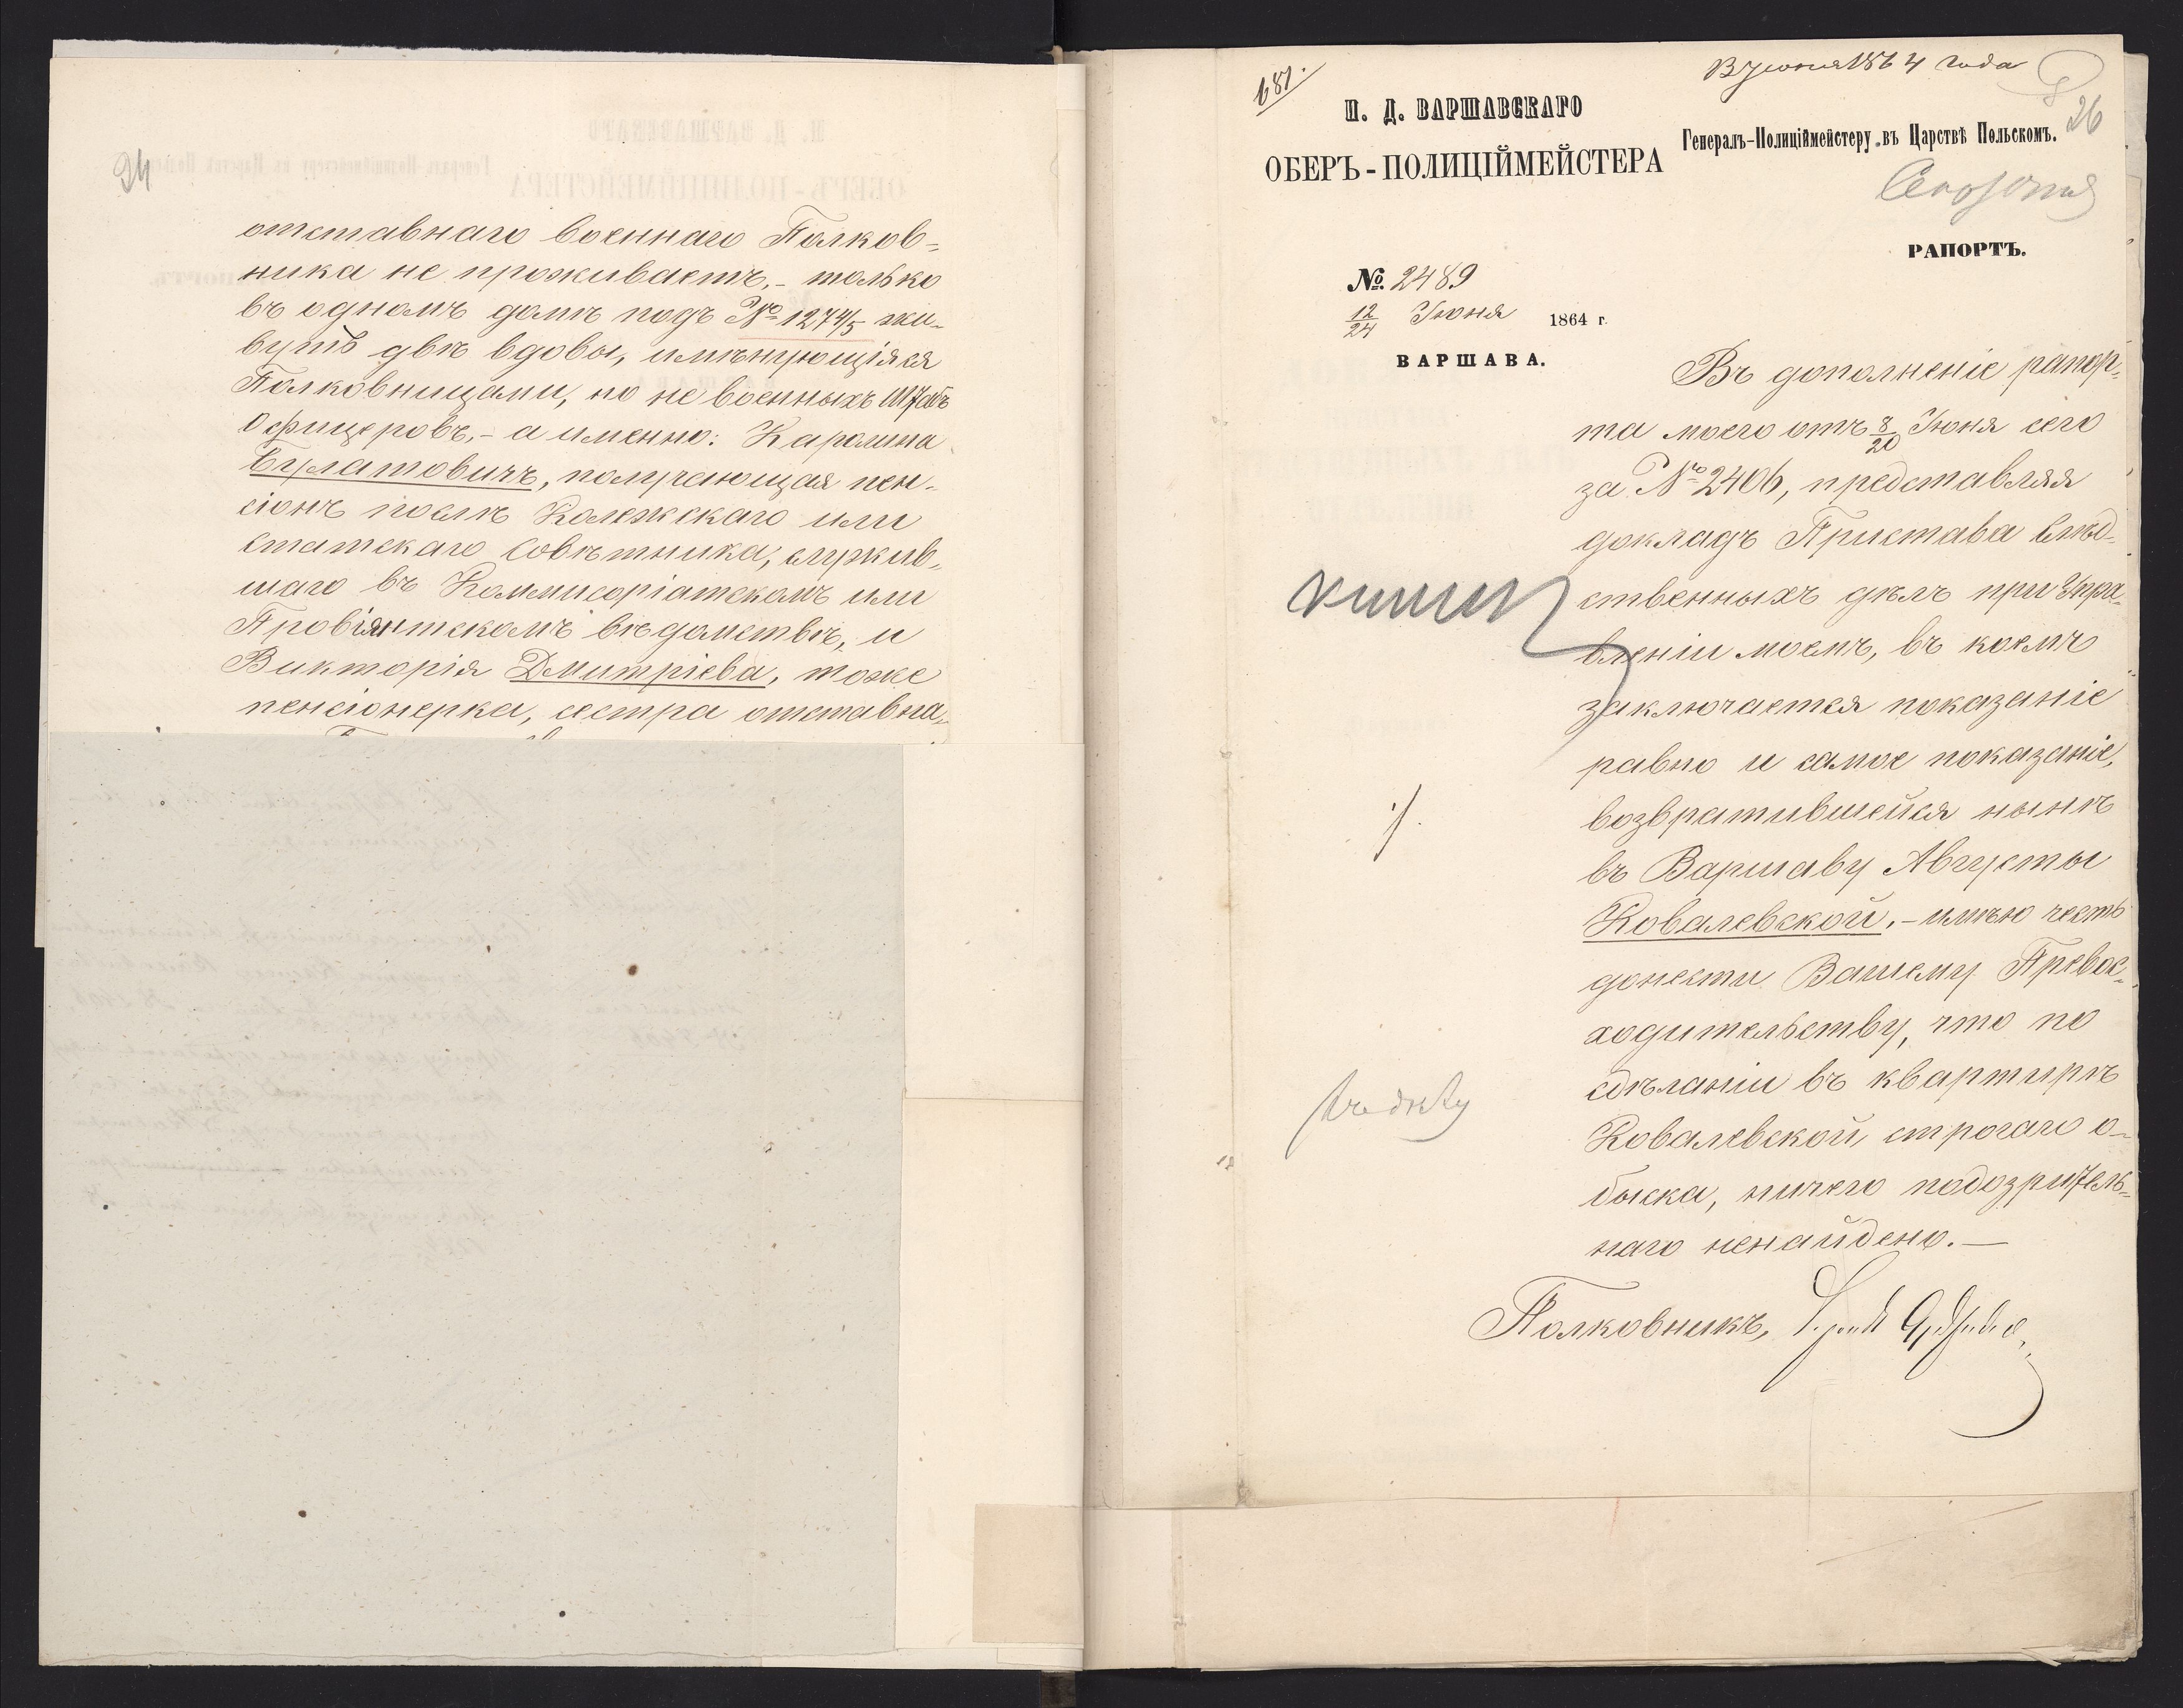 24
отставнаго военнаго Полков=
ника не проживаетъ,- только
въ одномъ домѣ подъ № 1274/5 жи-
вутъ двѣ вдовы, имѣнующіяся
Полковницами, но не военныхъ Штабъ
Офицеровъ,- а именно: Каролина
Булатовичъ, получающая пен-
сіонъ послѣ Колежскаго или
статскаго Совѣтника, служив-
шаго въ Коммисоріатскомъ или
Провіянтскомъ вѣдомствѣ, и
Викторія Дмитріева, тоже
пенсіонерка, сестра отставна-
681.
1864 года
26
И. Д. ВАРШАВСКАГО
ОБЕРЪ-ПОЛИЦІЙМЕЙСТЕРА
Генералъ-Полиціймейстеру въ Царствѣ Польскомъ.
РАПОРТЪ.
№ 2489
12/24 Іюня 1864 г.
ВАРШАВА.
Въ дополненіе рапор-
та моего отъ 8/20 Іюня сего
за № 2406, представляя
докладъ Пристава Слѣд-
ственныхъ дѣлъ при Упра-
вленіи моемъ, въ коемъ
заключается показаніе
равно и самое показаніе,
возвратившейся нынѣ
въ Варшаву Августы
Ковалевской,- имѣю честь
донести Вашему Превос-
ходительству, что по
сдѣланіи въ квартирѣ
Ковалевской, строгаго о-
быска, ничего подозритель-
наго ненайдено.—
Полковникъ,